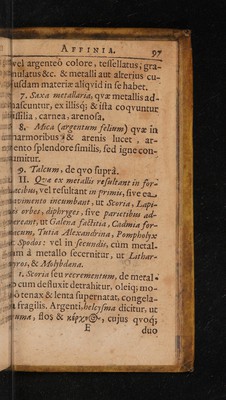 AFFINIA. 97
vel argenteô colore, tessellatus, gra-
nulatus &c. & metalli aut alterius cu-
jusdam materiæ aliqvid in se habet.
7. Saxa metallaria, qvæ metallis ad-
nascuntur, ex illisq; & ista coqvuntur
fusilia, carnea, arenosa.
8. Mica (argentum felium) qvæ in
marmoribus & arenis lucet, ar-
gento splendore similis, sed igne con-
sumitur.
9. Talcum, de qvo suprà.
II. Qvæ ex metallis resultant in for-
nacibus, vel resultant in primis, sive ea
pavimento incumbant, ut Scoria, Lapi-
is orbes, diphryges, sive parietibus ad-
hæreant, ut Galena factitia, Cadmia for-
nacum, Tutia Alexandrina, Pompholyx
& Spodos: vel in secundis, cùm metal-
lum à metallo secernitur, ut Lithar-
gyros, & Molybdana.
1. Scoria seu recrementum, de metal-
lo cum defluxit detrahitur. oleiq; mo-
dô tenax & lenta supernatat, congela-
ta fragilis. Argenti helcysma dicitur, ut
flos & cujus qvoq;
E duo